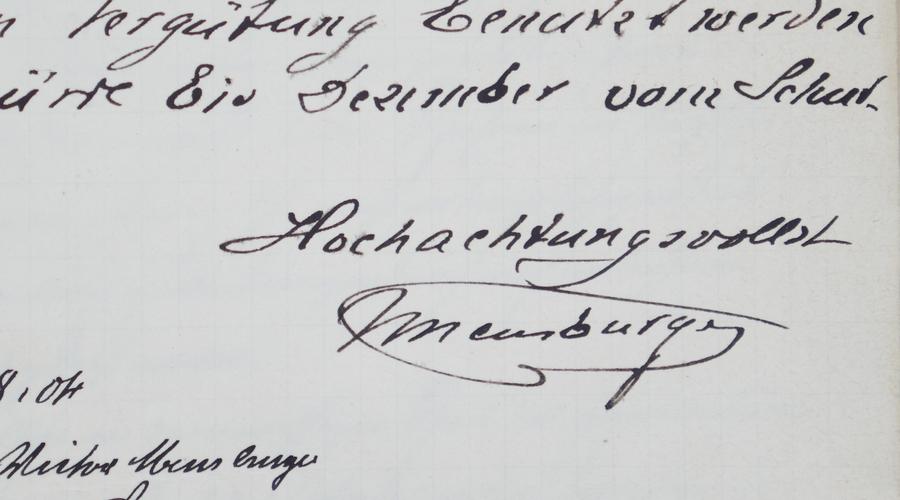 n Vergütung benutzt werden
ürfte Bis Dezember vom Schut-
Hochachtungsvollst
Meusburger
8.04
Victor Meusburger